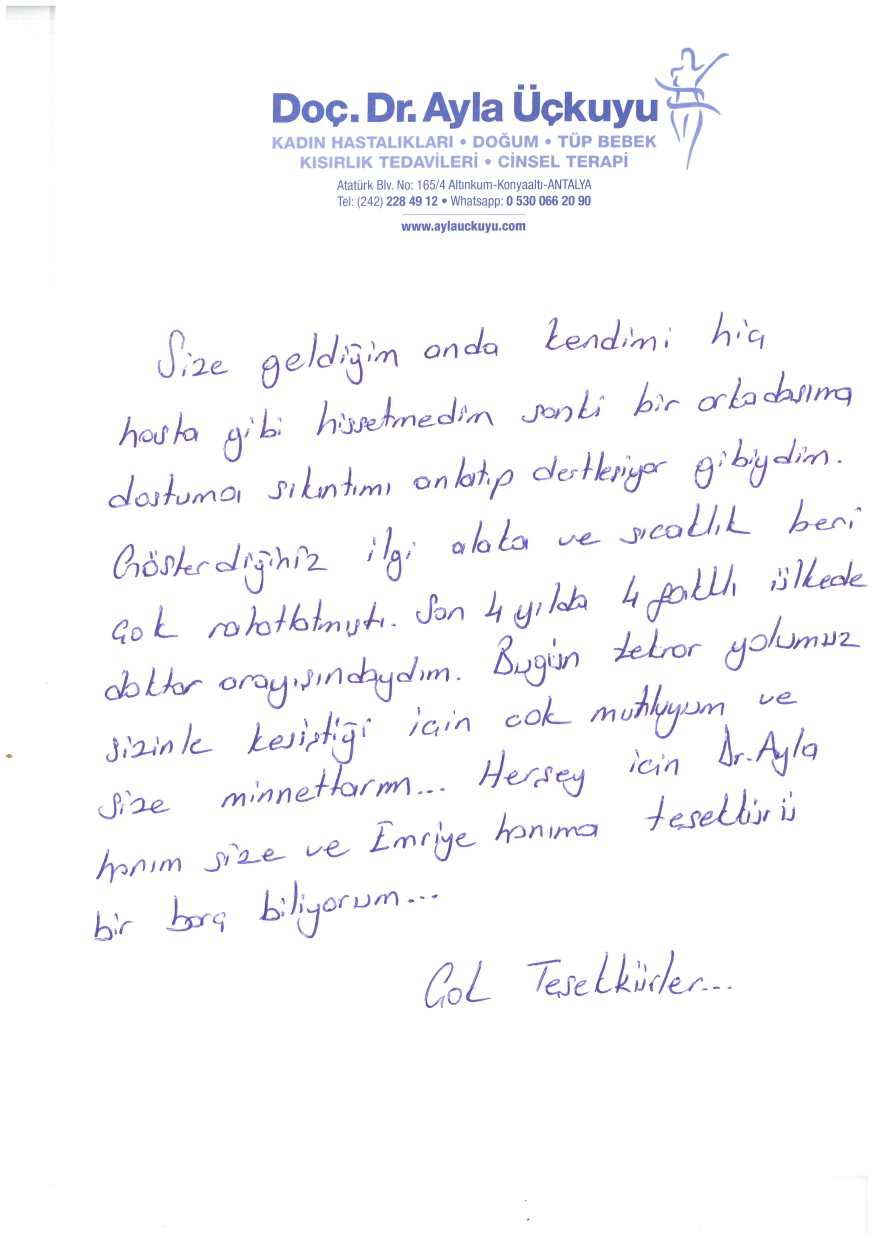 Doç. Dr. Ayla Üçkuyu
KADIN HASTALIKLARI • DOĞUM • TÜP BEBEK
KISIRLIK TEDAVİLERİ • CİNSEL TERAPİ
Atatürk Blv. No: 165/4 Altınkum-Konyaaltı-ANTALYA
Tel: (242) 228 49 12 • Whatsapp: 0 530 066 20 90
www.aylauckuyu.com
Size geldiğim anda kendimi hiç
hasta gibi hissetmedim sanki bir arkadasıma
dostuma sıkıntımı anlatıp dertlesiyor gibiydim.
Gösterdiğiniz ilgi alaka ve sıcaklık beni
çok rahatlatmıştı. Son 4 yılda 4 farklı ülkede
doktor arayışındaydım. Bugün tekrar yolumuz
sizinle kesiştiği için cok mutluyum ve
size minnettarım... Herşey icin Dr. Ayla
hanım size ve Emriye hanıma tesekkürü
bir borç biliyorum...
Çok Teşekkürler...